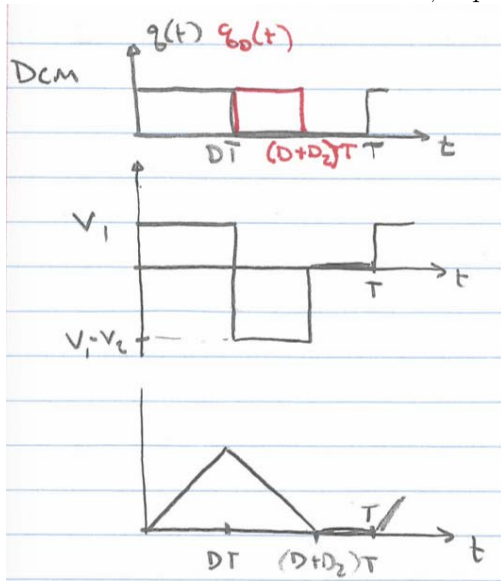 q(t) q_D(t)
DCM
DT (D+D₂)T T t
V₁
T t
V₁-V₂
T
DT (D+D₂)T t